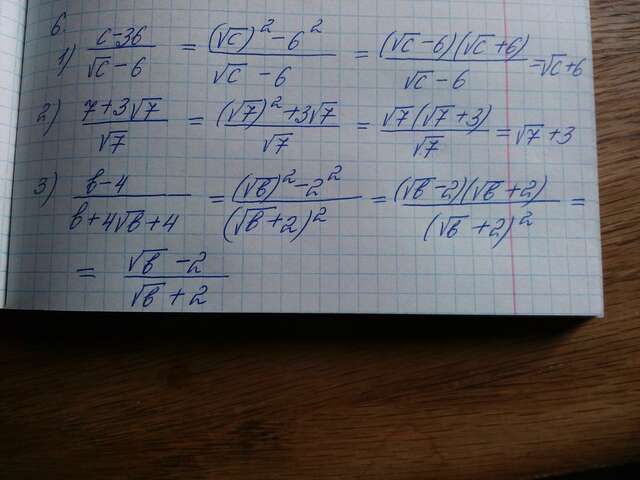 6.
1) (c-36)/(√c-6) = ((√c)²-6²)/(√c-6) = ((√c-6)(√c+6))/(√c-6) = √c+6
2) (7+3√7)/√7 = ((√7)²+3√7)/√7 = (√7(√7+3))/√7 = √7+3
3) (b-4)/(b+4√b+4) = ((√b)²-2²)/(√b+2)² = ((√b-2)(√b+2))/(√b+2)² =
= (√b-2)/(√b+2)